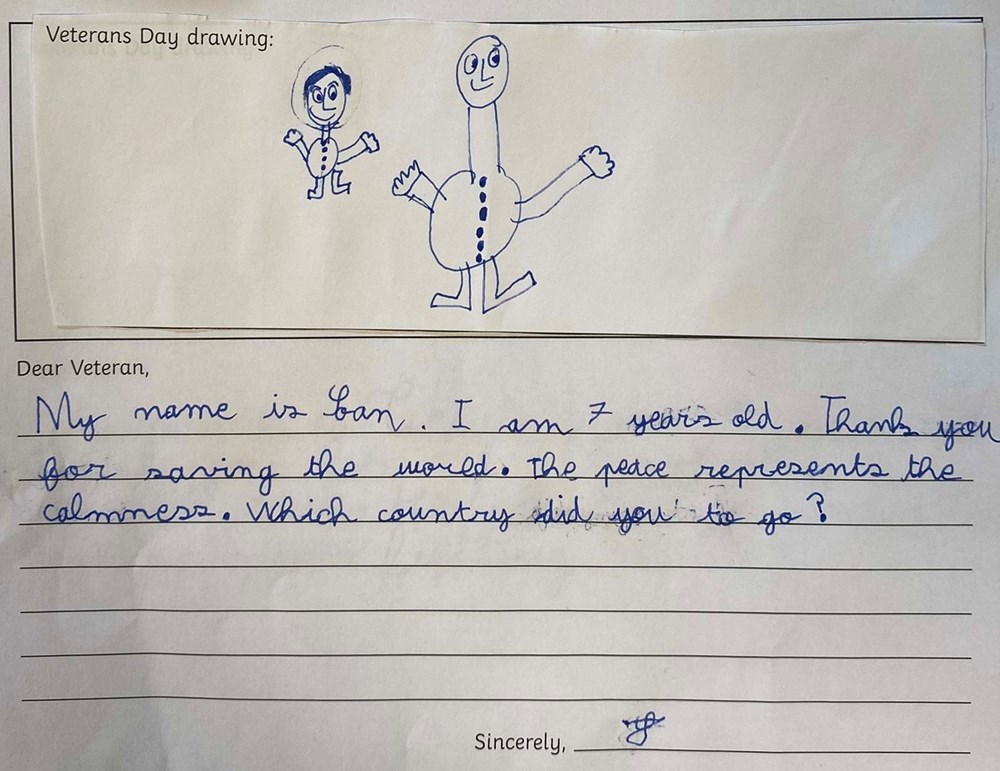 Veterans Day drawing:
Dear Veteran,
My name is . I am 7 years old. Thank you
for saving the world. The peace represents the
calmness. Which country did you to go?
Sincerely,